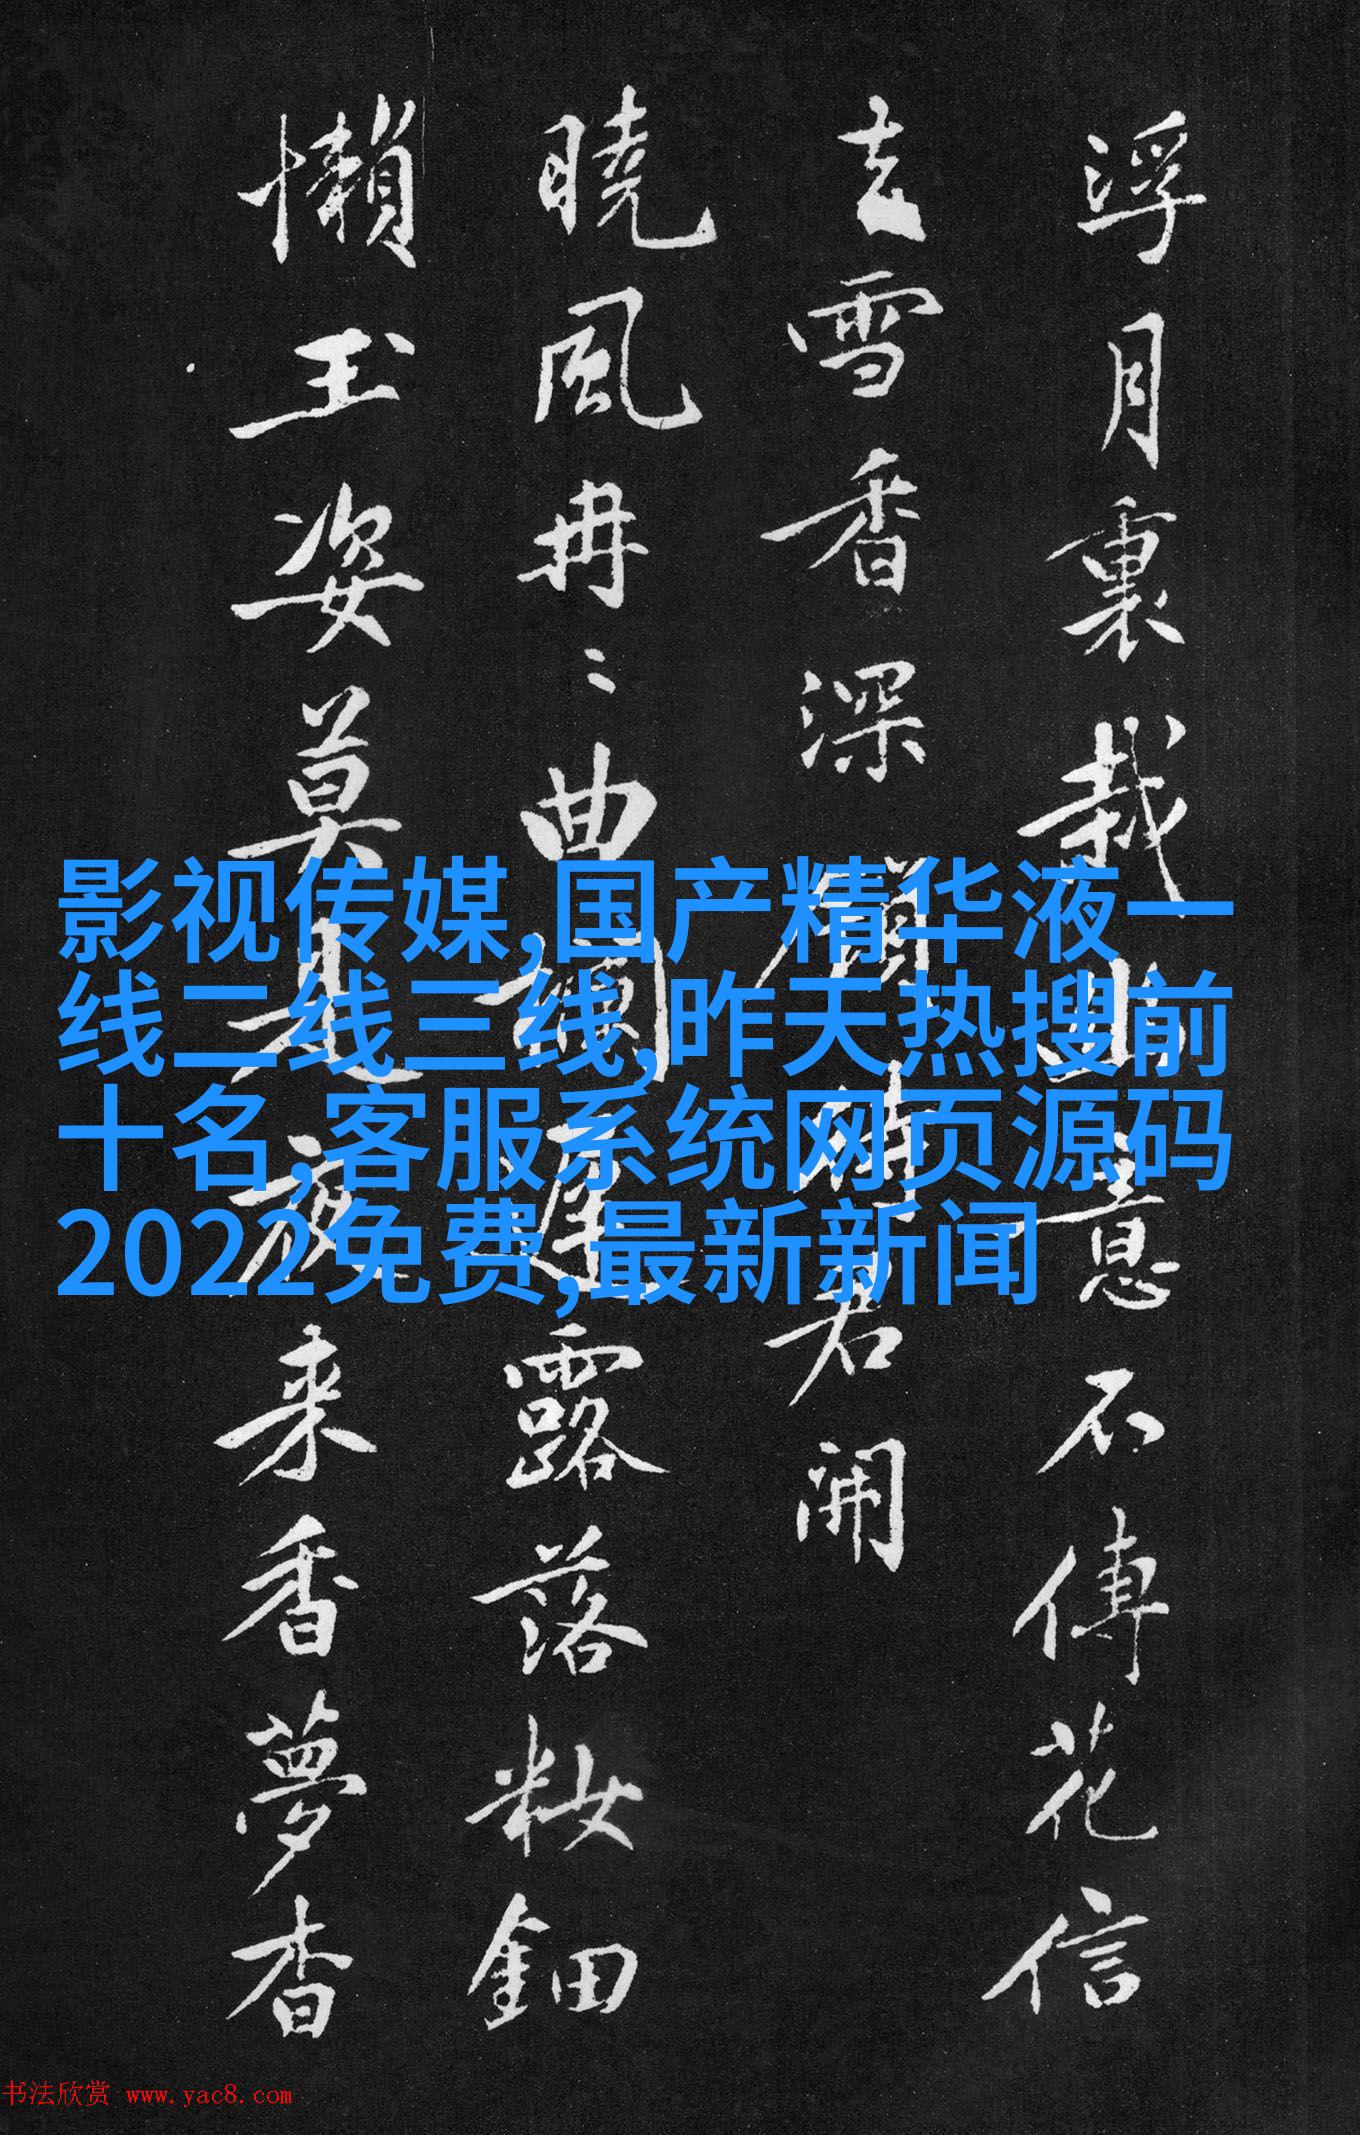 浮月裏栽意不傳花信
雪香深君開
曉風冉〻曲露落鈿
懶玉姿莫夜来香夢香
影视传媒,国产精华液一
线二线三线,昨天热搜前
十名,客服系统网页源码
2022免费,最新新闻
书法欣赏 www.yac8.com